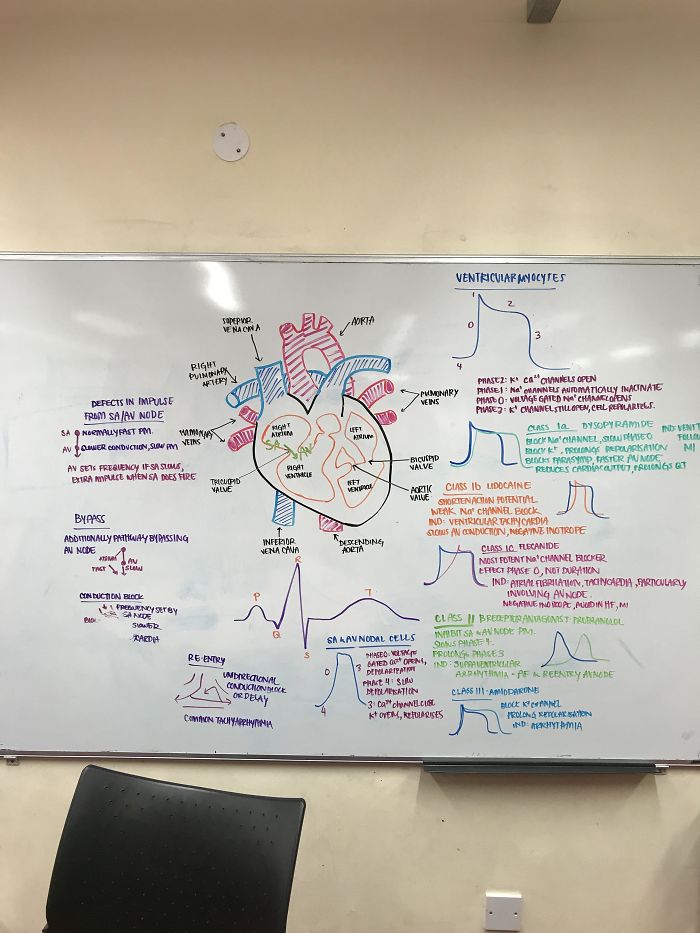 VENTRICULAR MYOCYTES
1
0
2
3
4
PHASE 2: K+ Ca2+ CHANNELS OPEN
PHASE 1: Na+ CHANNELS AUTOMATICALLY INACTIVATE
PHASE 0: VOLTAGE GATED Na+ CHANNEL OPENS
PHASE 3: K+ CHANNEL STILL OPEN, CELL REPOLARISES.
SUPERIOR
VENA CAVA
AORTA
RIGHT
PULMONARY
ARTERY
PULMONARY
VEINS
PULMONARY
VEINS
RIGHT
ATRIUM
LEFT
ATRIUM
SA
AV
RIGHT
VENTRICLE
LEFT
VENTRICLE
BICUSPID
VALVE
TRICUSPID
VALVE
AORTIC
VALVE
INFERIOR
VENA CAVA
DESCENDING
AORTA
DEFECTS IN IMPULSE
FROM SA/AV NODE
SA NORMALLY FAST PM.
AV SLOWER CONDUCTION, SLOW PM
AV SETS FREQUENCY IF SA SLOWS,
EXTRA IMPULSE WHEN SA DOES FIRE
BYPASS
ADDITIONALLY PATHWAY BYPASSING
AV NODE
ATRIUM
FAST
AV
SLOW
CONDUCTION BLOCK
FREQUENCY SET BY
SA NODE
SLOWER
CARDIA
RE-ENTRY
UNIDIRECTIONAL
CONDUCTION BLOCK
OR DELAY
COMMON TACHYARRHYTHMIA
P
Q
R
S
T
SA & AV NODAL CELLS
0
3
4
PHASE 0: VOLTAGE
GATED Ca2+ OPENS,
DEPOLARIZATION
PHASE 4: SLOW
DEPOLARISATION
3: Ca2+ CHANNEL CLOSE
K+ OPENS, REPOLARISES
CLASS 1a DYSOPYRAMIDE
BLOCK Na+ CHANNEL, SLOWS PHASE 0
BLOCK K+, PROLONGS REPOLARISATION
BLOCK PARASYMP, FASTER AV NODE
REDUCES CARDIAC OUTPUT, PROLONGS QT
IND: VENT
FOLLO
MI
CLASS 1b LIDOCAINE
SHORTEN ACTION POTENTIAL
WEAK Na+ CHANNEL BLOCK
IND: VENTRICULAR TACHYCARDIA
SLOWS AV CONDUCTION, NEGATIVE INOTROPE
CLASS 1C FLECANIDE
MOST POTENT Na+ CHANNEL BLOCKER
EFFECT PHASE 0, NOT DURATION
IND: ATRIAL FIBRILATION, TACHYCARDIA, PARTICULARLY
INVOLVING AV NODE.
NEGATIVE INOTROPE, AVOID IN HF, MI
CLASS II B RECEPTOR ANTAGONIST PROPRANOLOL
INHIBIT SA & AV NODE PM.
SLOWS PHASE 4.
PROLONGS PHASE 3
IND: SUPRAVENTRICULAR
ARRHYTHMIA - AF & REENTRY AV NODE
CLASS III - AMIODARONE
BLOCK K+ CHANNEL
PROLONG REPOLARISATION
IND: ARRHYTMIA